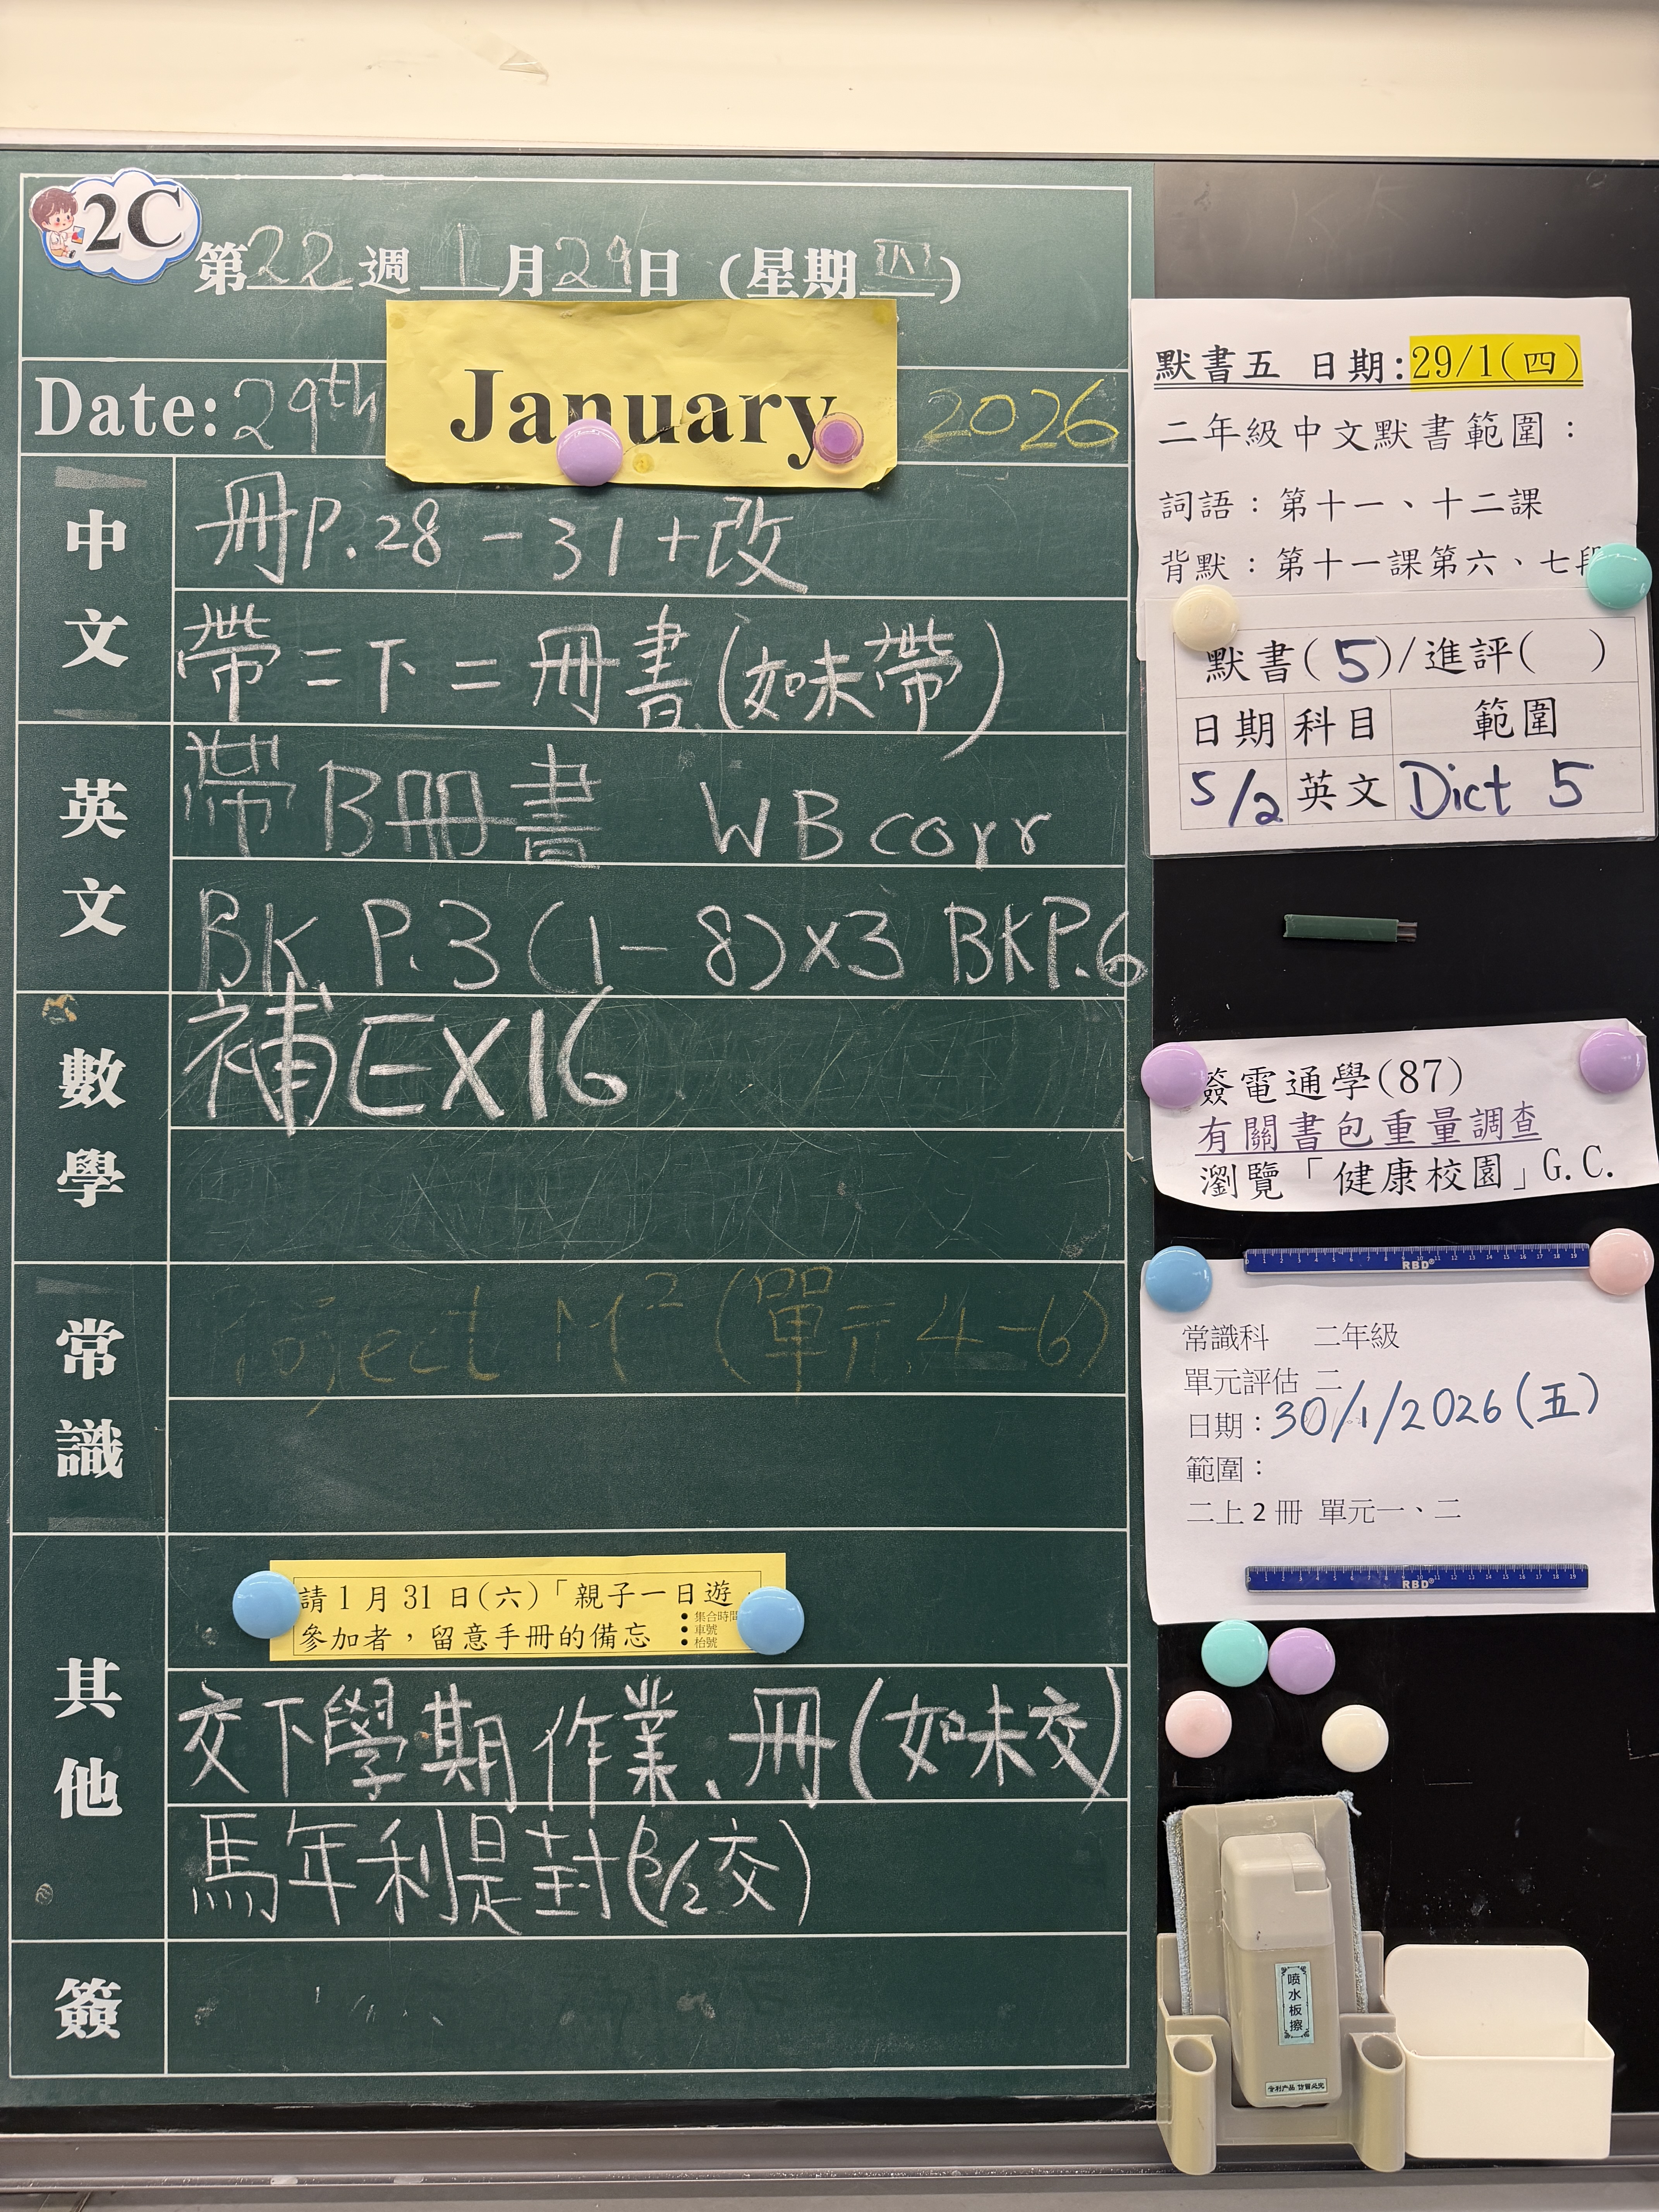 2C
第22週 1月29日(星期四)
Date: 29th January 2026
中文
冊P.28-31+改
帶二下二冊書(如未帶)
英文
帶B冊書 WB corr
BK P.3(1-8)x3 BKP.6
數學
補EX16
常識
Project M² (單元4-6)
其他
請1月31日(六)「親子一日遊」
參加者,留意手冊的備忘
●集合時間
●車號
●枱號
交下學期作業、冊(如未交)
馬年利是封(/2交)
簽
默書五 日期:29/1(四)
二年級中文默書範圍:
詞語:第十一、十二課
背默:第十一課第六、七段
默書(5)/進評( )
日期 科目 範圍
5/2 英文 Dict 5
簽電通學(87)
有關書包重量調查
瀏覽「健康校園」G.C.
RBD
常識科 二年級
單元評估 二
日期:30/1/2026(五)
範圍:
二上2冊 單元一、二
RBD
喷水板擦